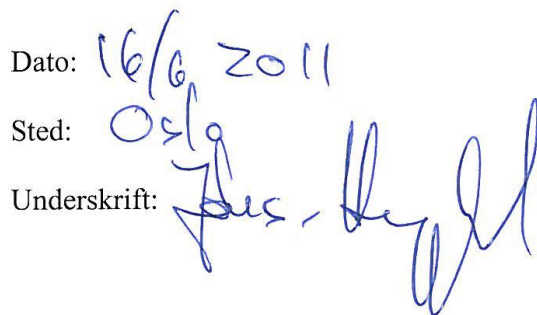 Dato: 16/6 2011
Sted: Oslo
Underskrift: